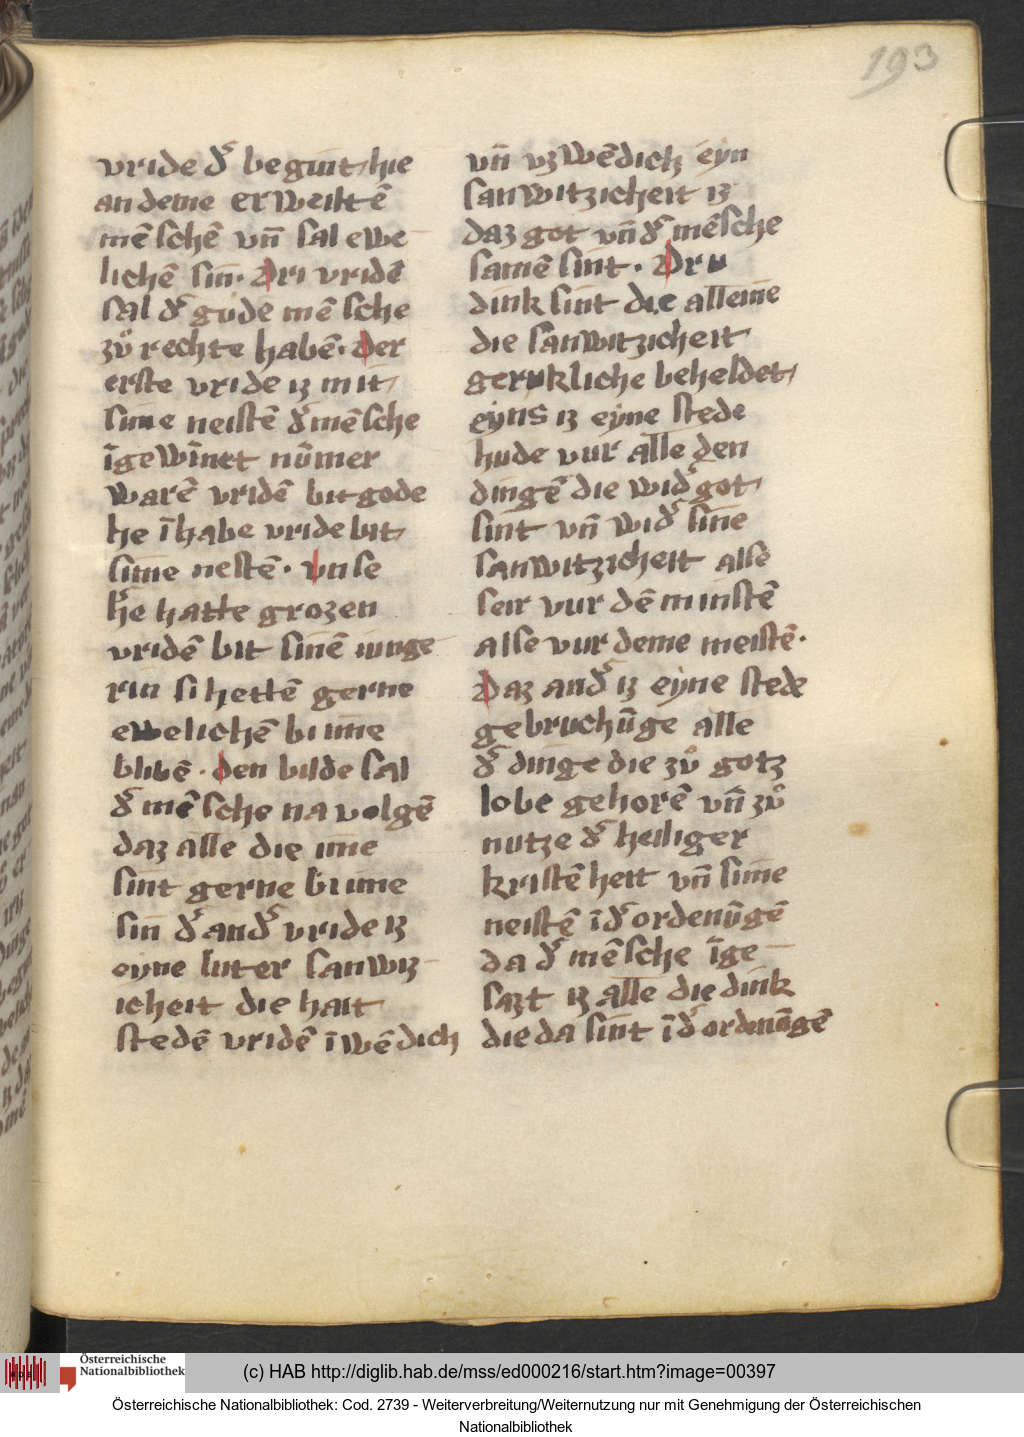 193
vride d᷑ beginit hie
an deme erweiltē
mēschē vn̄ sal ewe
lichē sin. Dri vridē
sal d᷑ gůde mēsche
zů rechte habē. Der
erste vride iz mit
sime neistē d᷑ mēsche
īgewīnet nūmer
warē vridē bit gode
he ī habe vride bit
sime nestē. Vnse
h᷑e hatte grozen
vridē bit sinē iunge
rin si hettē gerne
ewelichē bi ime
blibē. Den bilde sal
d᷑ mēsche na volgē
daz alle die ime
sint gerne bi ime
sin d᷑ and᷑ vride iz
eyne luter sanwiz
icheit die hait
stedē vridē īwēdich
vn̄ vzwēdich eyn
sanwitzicheit iz
daz got vn̄ d᷑ mēsche
samē sint. Dru
dink sint die alleine
die sanwitzicheit
gerukliche beheldet
eyns iz eyne stede
hude vur alle den
dingē die wid᷑ got
sint vn̄ wid᷑ sine
sanwitzicheit alse
seir vur dē minstē
alse vur deme meistē.
Daz and᷑ iz eyne stede
gebruchūge alle
d᷑ dinge die zů gotz
lobe gehorē vn̄ zů
nutze d᷑ heiliger
kristēheit vn̄ sime
neistē ī d᷑ ordenūgē
da d᷑ mēsche īge
sazt iz alle die dink
die da sint ī d᷑ ordenūgē
Österreichische
Nationalbibliothek
(c) HAB http://diglib.hab.de/mss/ed000216/start.htm?image=00397
Österreichische Nationalbibliothek: Cod. 2739 - Weiterverbreitung/Weiternutzung nur mit Genehmigung der Österreichischen
Nationalbibliothek